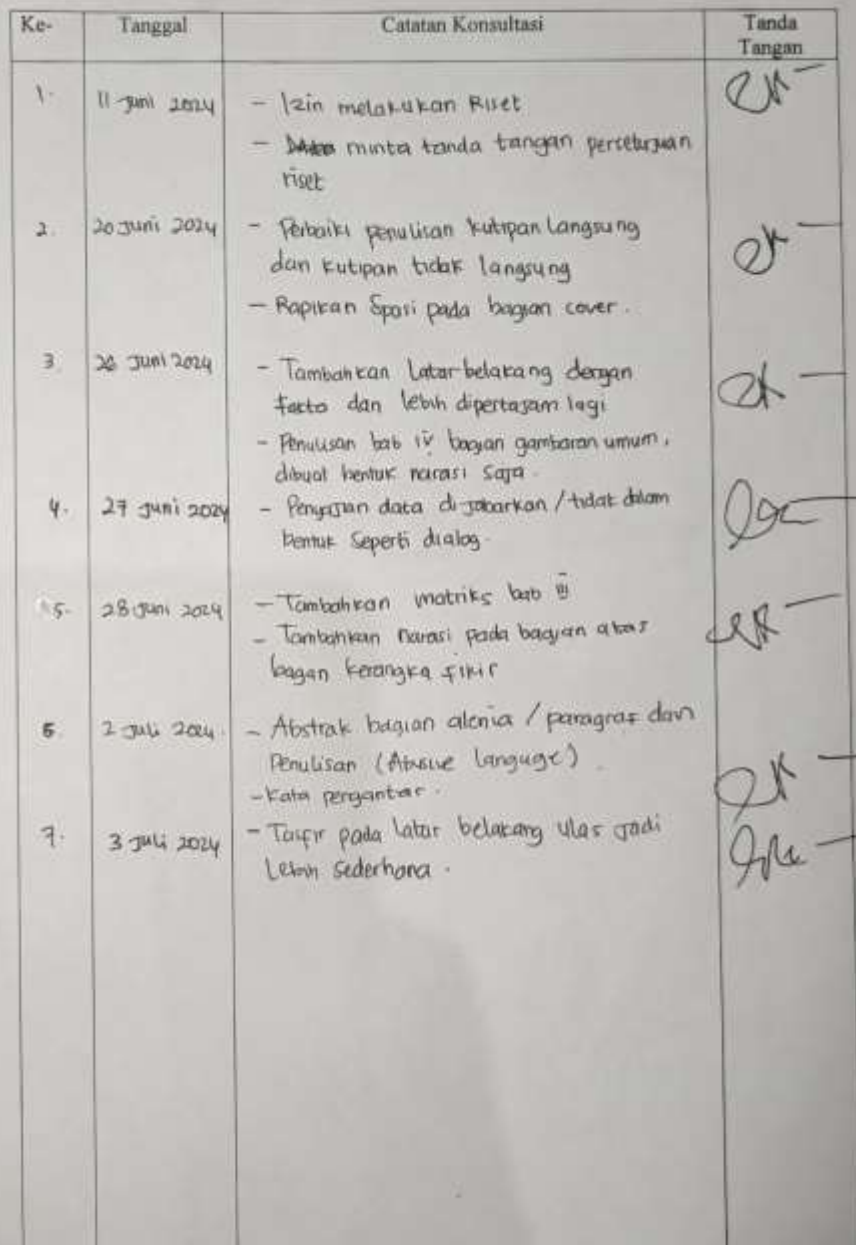 Ke- Tanggal Catatan Konsultasi Tanda
Tangan
1. 11 Juni 2024 - Izin melakukan Riset
- minta tanda tangan persetujuan
riset
2. 20 Juni 2024 - Perbaiki penulisan kutipan langsung
dan kutipan tidak langsung
- Rapikan Spasi pada bagian cover.
3. Juni 2024 - Tambahkan Latar belakang dengan
facto dan lebih dipertajam lagi
- Penulisan bab iv bagian gambaran umum,
dibuat bentuk narasi saja.
4. 27 Juni 2024 - Penyajian data di jabarkan / tidak dalam
bentuk seperti dialog.
5. 28 Juni 2024 - Tambahkan matriks bab
- Tambahkan narasi pada bagian atas
bagan kerangka fikir
6. 2 Juli 2024. - Abstrak bagian alenia / paragraf dan
Penulisan (Abusive languge)
- Kata pergantar.
7. 3 Juli 2024 - Tasfir pada latar belakang ulas jadi
Lebih sederhana.